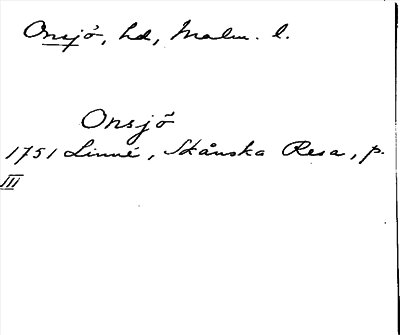 Onsjö, hd, Malm. l.
Onsjö
1751 Linné, Skånska Resa, p.
III